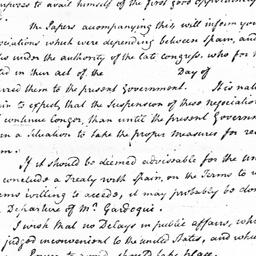 rposes to avail himself of the first good opportunity
The Papers accompanying this, will inform you
ociations which were depending between Spain, and
es under the authority of the late congress, who for
ed in their act of the Day of
rred them to the present Government. It is nat
n to expect, that the Suspension of these negociation
continue longer, than until the present Governm
en a Situation to take the proper measures for re
m.
If it should be deemed adviseable for the un
conclude a Treaty with Spain, on the Terms to w
ems willing to accede, it may probably be don
Departure of Mr. Gardoqui.
I wish that no Delays in public affairs, wh
judged inconvenient to the united States, and wh
should take place.